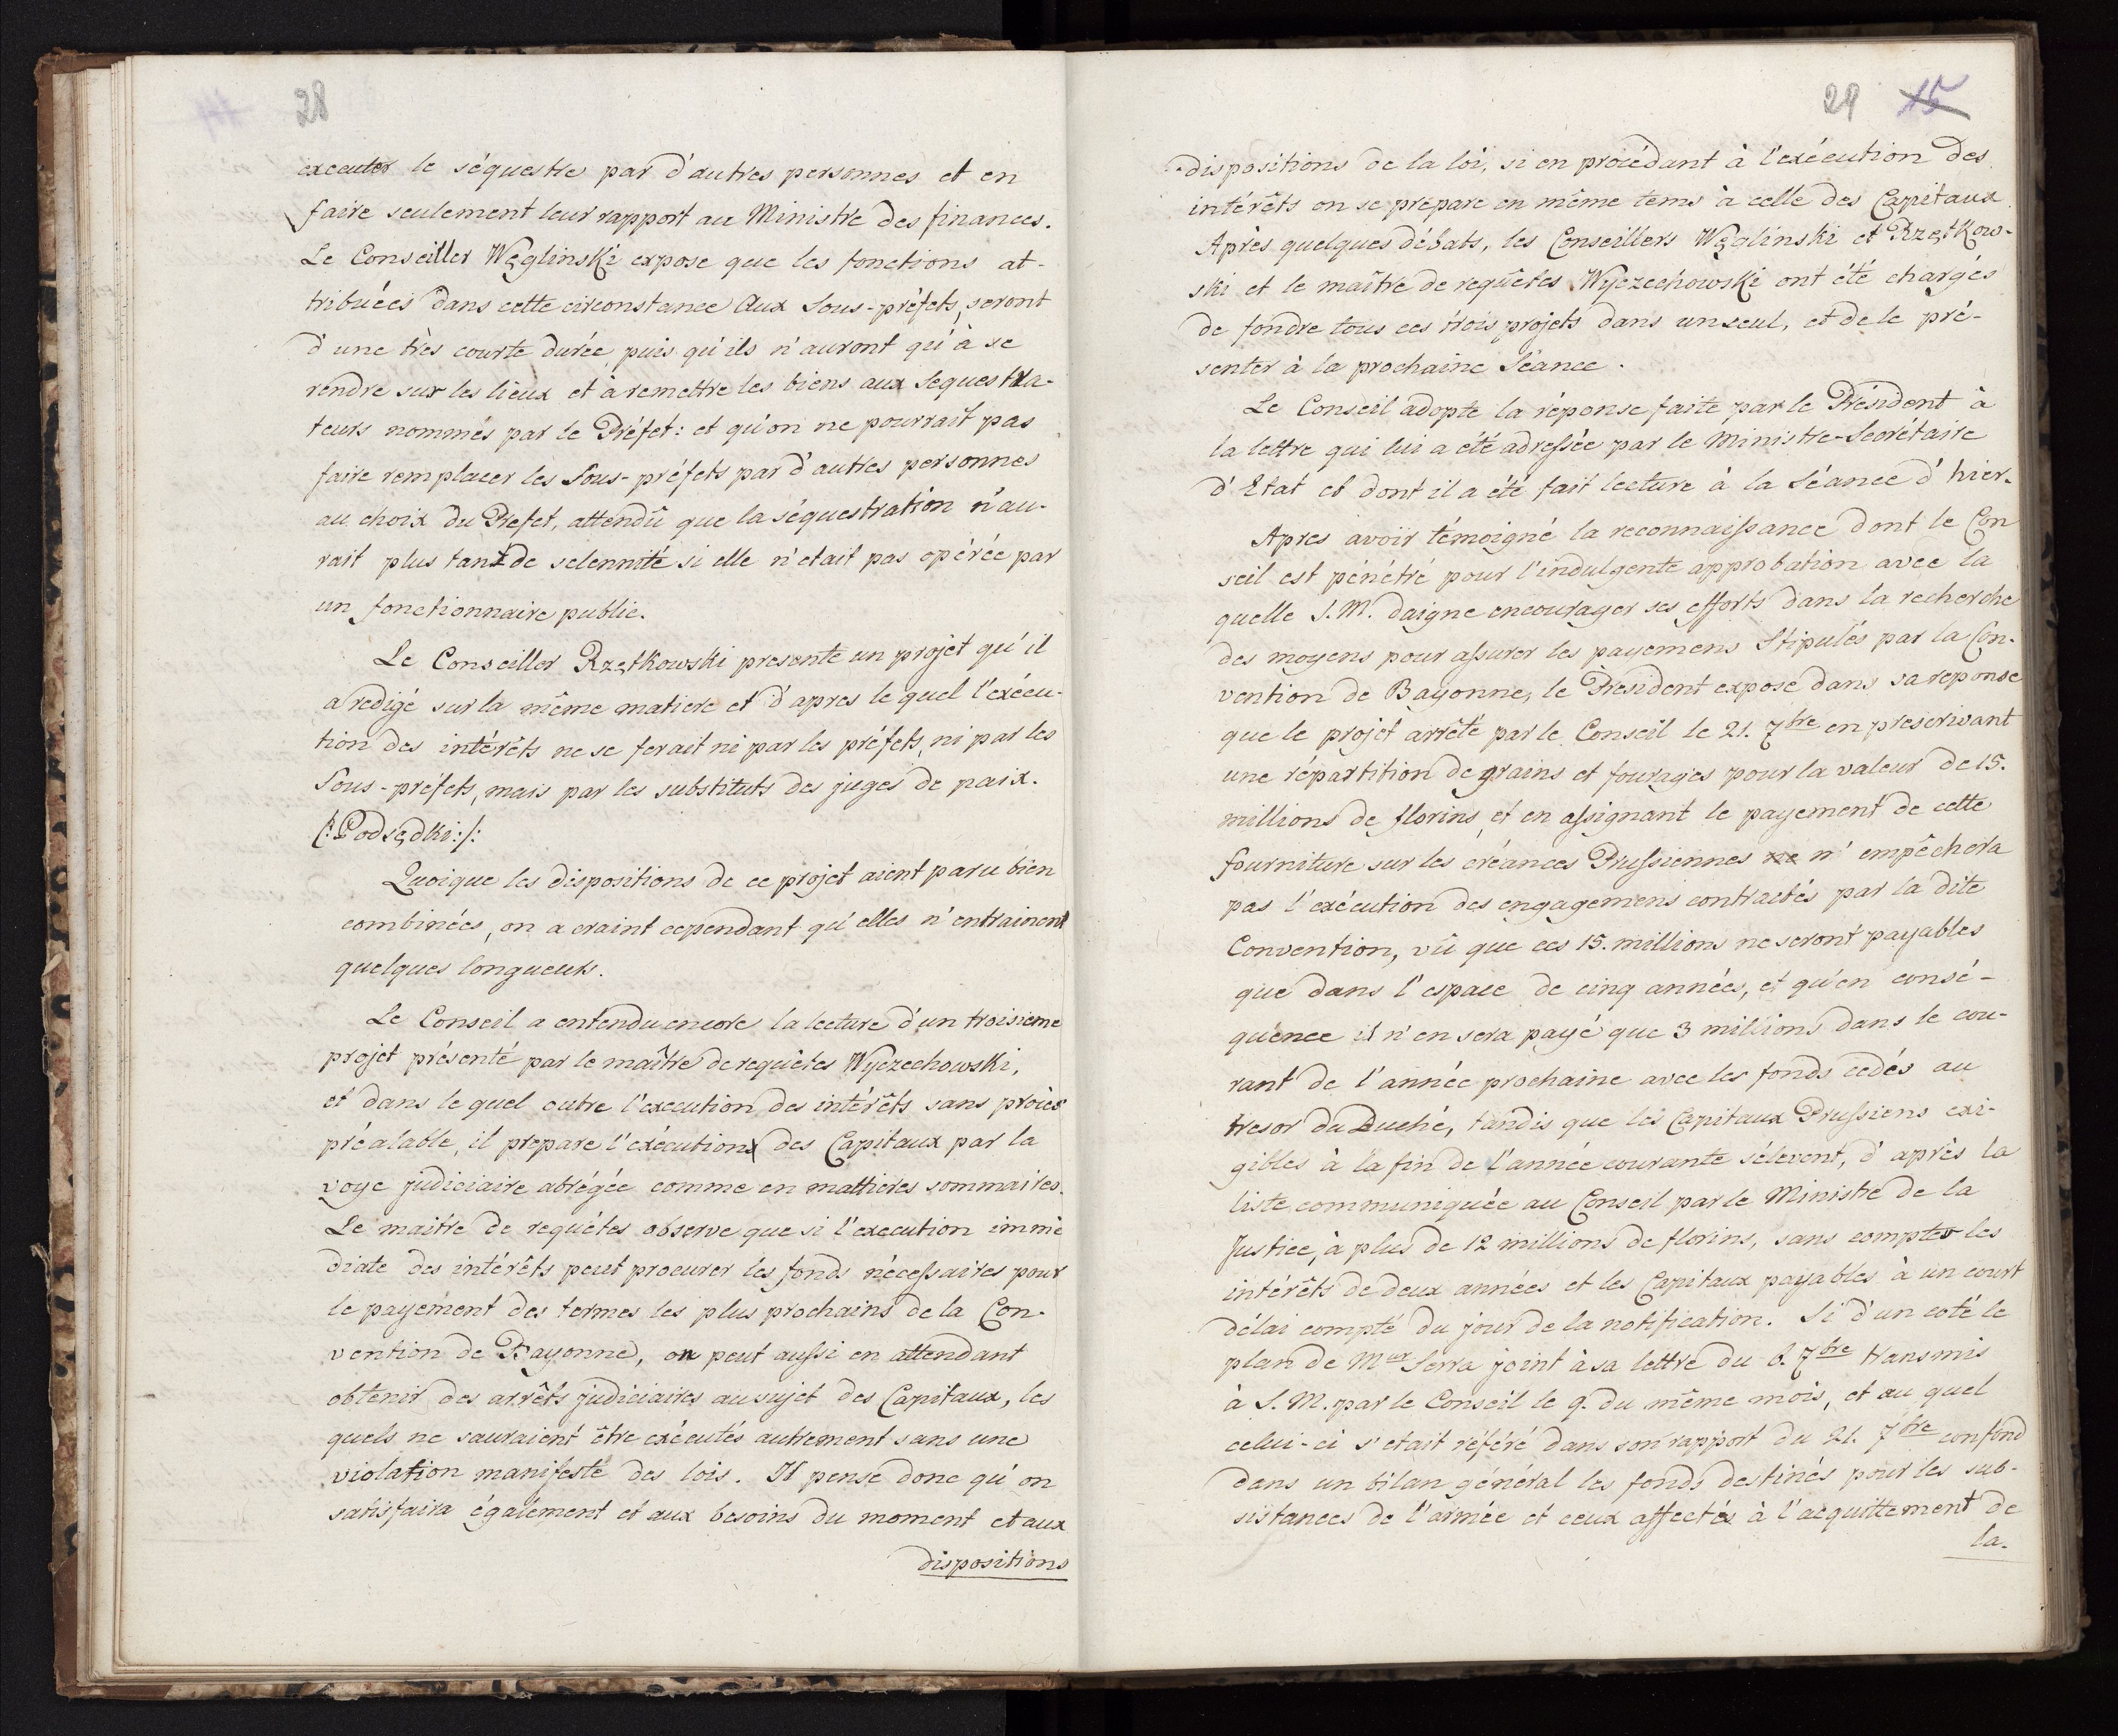 28
executer le séquestre par d'autres personnes et en
faire seulement leur rapport au Ministre des finances.
Le Conseiller Węglinski expose que les fonctions at-
tribuées dans cette circonstance aux Sous-préfets, seront
d'une très courte durée puis qu'ils n'auront qu'à se
rendre sur les lieux et à remettre les biens aux Sequestra-
teurs nommés par le Préfet: et qu'on ne pourrait pas
faire remplacer les Sous-préfets par d'autres personnes
au choix du Prefet, attendû que la séquestration n'au-
rait plus tant de solennité si elle n'etait pas opérée par
un fonctionnaire public.
Le Conseiller Rzętkowski presente un projet qu'il
a redigé sur la même matiere et d'apres le quel l'exécu-
tion des intérêts ne se ferait ni par les préfets, ni par les
Sous-préfets, mais par les substituts des juges de paix.
(:Podsędki:/:
Quoique les dispositions de ce projet aient paru bien
combinées, on a craint cependant qu'elles n'entrainent
quelques longueurs.
Le Conseil a entendu encore la lecture d'un troisieme
projet présenté par le maître de requêtes Wyczechowski,
et dans le quel outre l'execution des intérêts sans procès
préalable, il prepare l'exécution des Capitaux par la
voye judiciaire abrégée comme en mattieres sommaires.
Le maitre de requêtes observe que si l'execution immé
diate des intérêts peut procurer les fonds nécessaires pour
le payement des termes les plus prochains de la Con-
vention de Bayonne, on peut aussi en attendant
obtenir des arrêts judiciaires au sujet des Capitaux, les
quels ne sauraient être exécutés autrement sans une
violation manifeste des lois. Il pense donc qu'on
satisfaira également et aux besoins du moment et aux
dispositions
29 15
dispositions de la loi, si en procédant à l'exécution des
intérêts on se prépare en même tems à celle des Capitaux
Après quelques débats, les Conseillers Węglinski et Rzętkow-
ski et le maître de requêtes Wyczechowski ont été chargés
de fondre tous ces trois projets dans un seul, et de le pré-
senter à la prochaine Séance.
Le Conseil adopte la réponse faite par le Président à
la lettre qui lui a été adressée par le Ministre-Secrétaire
d'Etat et dont il a été fait lecture à la Séance d'hier.
Apres avoir témoigné la reconnaissance dont le Con
seil est pénétré pour l'indulgente approbation avec la
quelle S. M. daigne encourager ses efforts dans la recherche
des moyens pour assurer les payemens Stipulés par la Con-
vention de Bayonne, le Président expose dans sa reponse
que le projet arrêté par le Conseil le 21. 7bre en prescrivant
une répartition de grains et fourages pour la valeur de 15.
millions de florins, et en assignant le payement de cette
fourniture sur les créances Prussiennes ne n'empêchera
pas l'exécution des engagemens contractés par la dite
Convention, vû que ces 15. millions ne seront payables
que dans l'espace de cinq années, et qu'en consé-
quence il n'en sera payé que 3 millions dans le cou-
rant de l'année prochaine avec les fonds cedés au
tresor du Duché, tandis que les Capitaux Prussiens exi-
gibles à la fin de l'année courante s'élevent, d'après la
liste communiquée au Conseil par le Ministre de la
Justice, à plus de 12 millions de florins, sans compter les
intérêts de deux années et les Capitaux payables à un court
délai compté du jour de la notification. Si d'un coté le
plan de Mer Serra joint à sa lettre du 8. 7bre transmis
à S. M. par le Conseil le 9. du même mois, et au quel
celui-ci s'etait référé dans son rapport du 21. 7bre confond
dans un bilan général les fonds destinés pour les sub-
sistances de l'armée et ceux affectés à l'acquittement de
la.